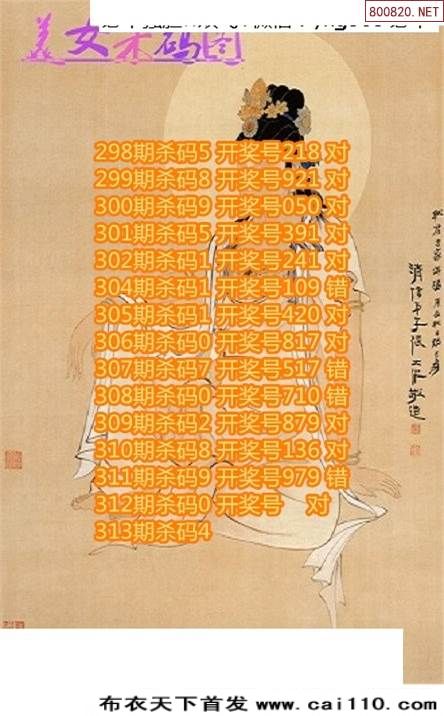 800820.NET
美女杀码图
298期杀码5 开奖号218 对
299期杀码8 开奖号921 对
300期杀码9 开奖号050 对
301期杀码5 开奖号391 对
302期杀码1 开奖号241 对
304期杀码1 开奖号109 错
305期杀码1 开奖号420 对
306期杀码0 开奖号817 对
307期杀码7 开奖号517 错
308期杀码0 开奖号710 错
309期杀码2 开奖号879 对
310期杀码8 开奖号136 对
311期杀码9 开奖号979 错
312期杀码0 开奖号 对
313期杀码4
布衣天下首发 www.cai110.com